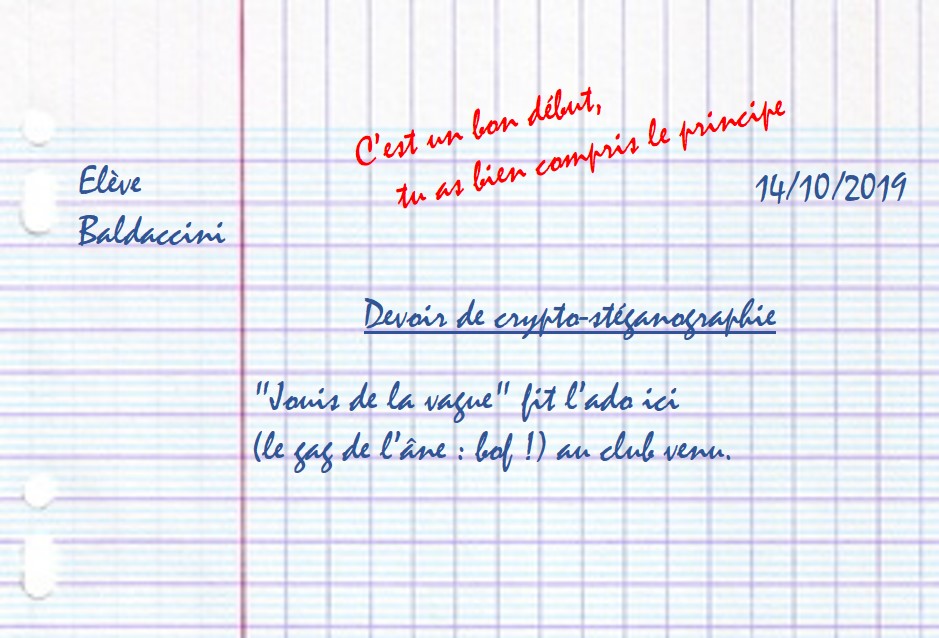 C'est un bon début,
tu as bien compris le principe
Elève
Baldaccini
14/10/2019
Devoir de crypto-stéganographie
"Jouis de la vague" fit l'ado ici
(le gag de l'âne : bof !) au club venu.